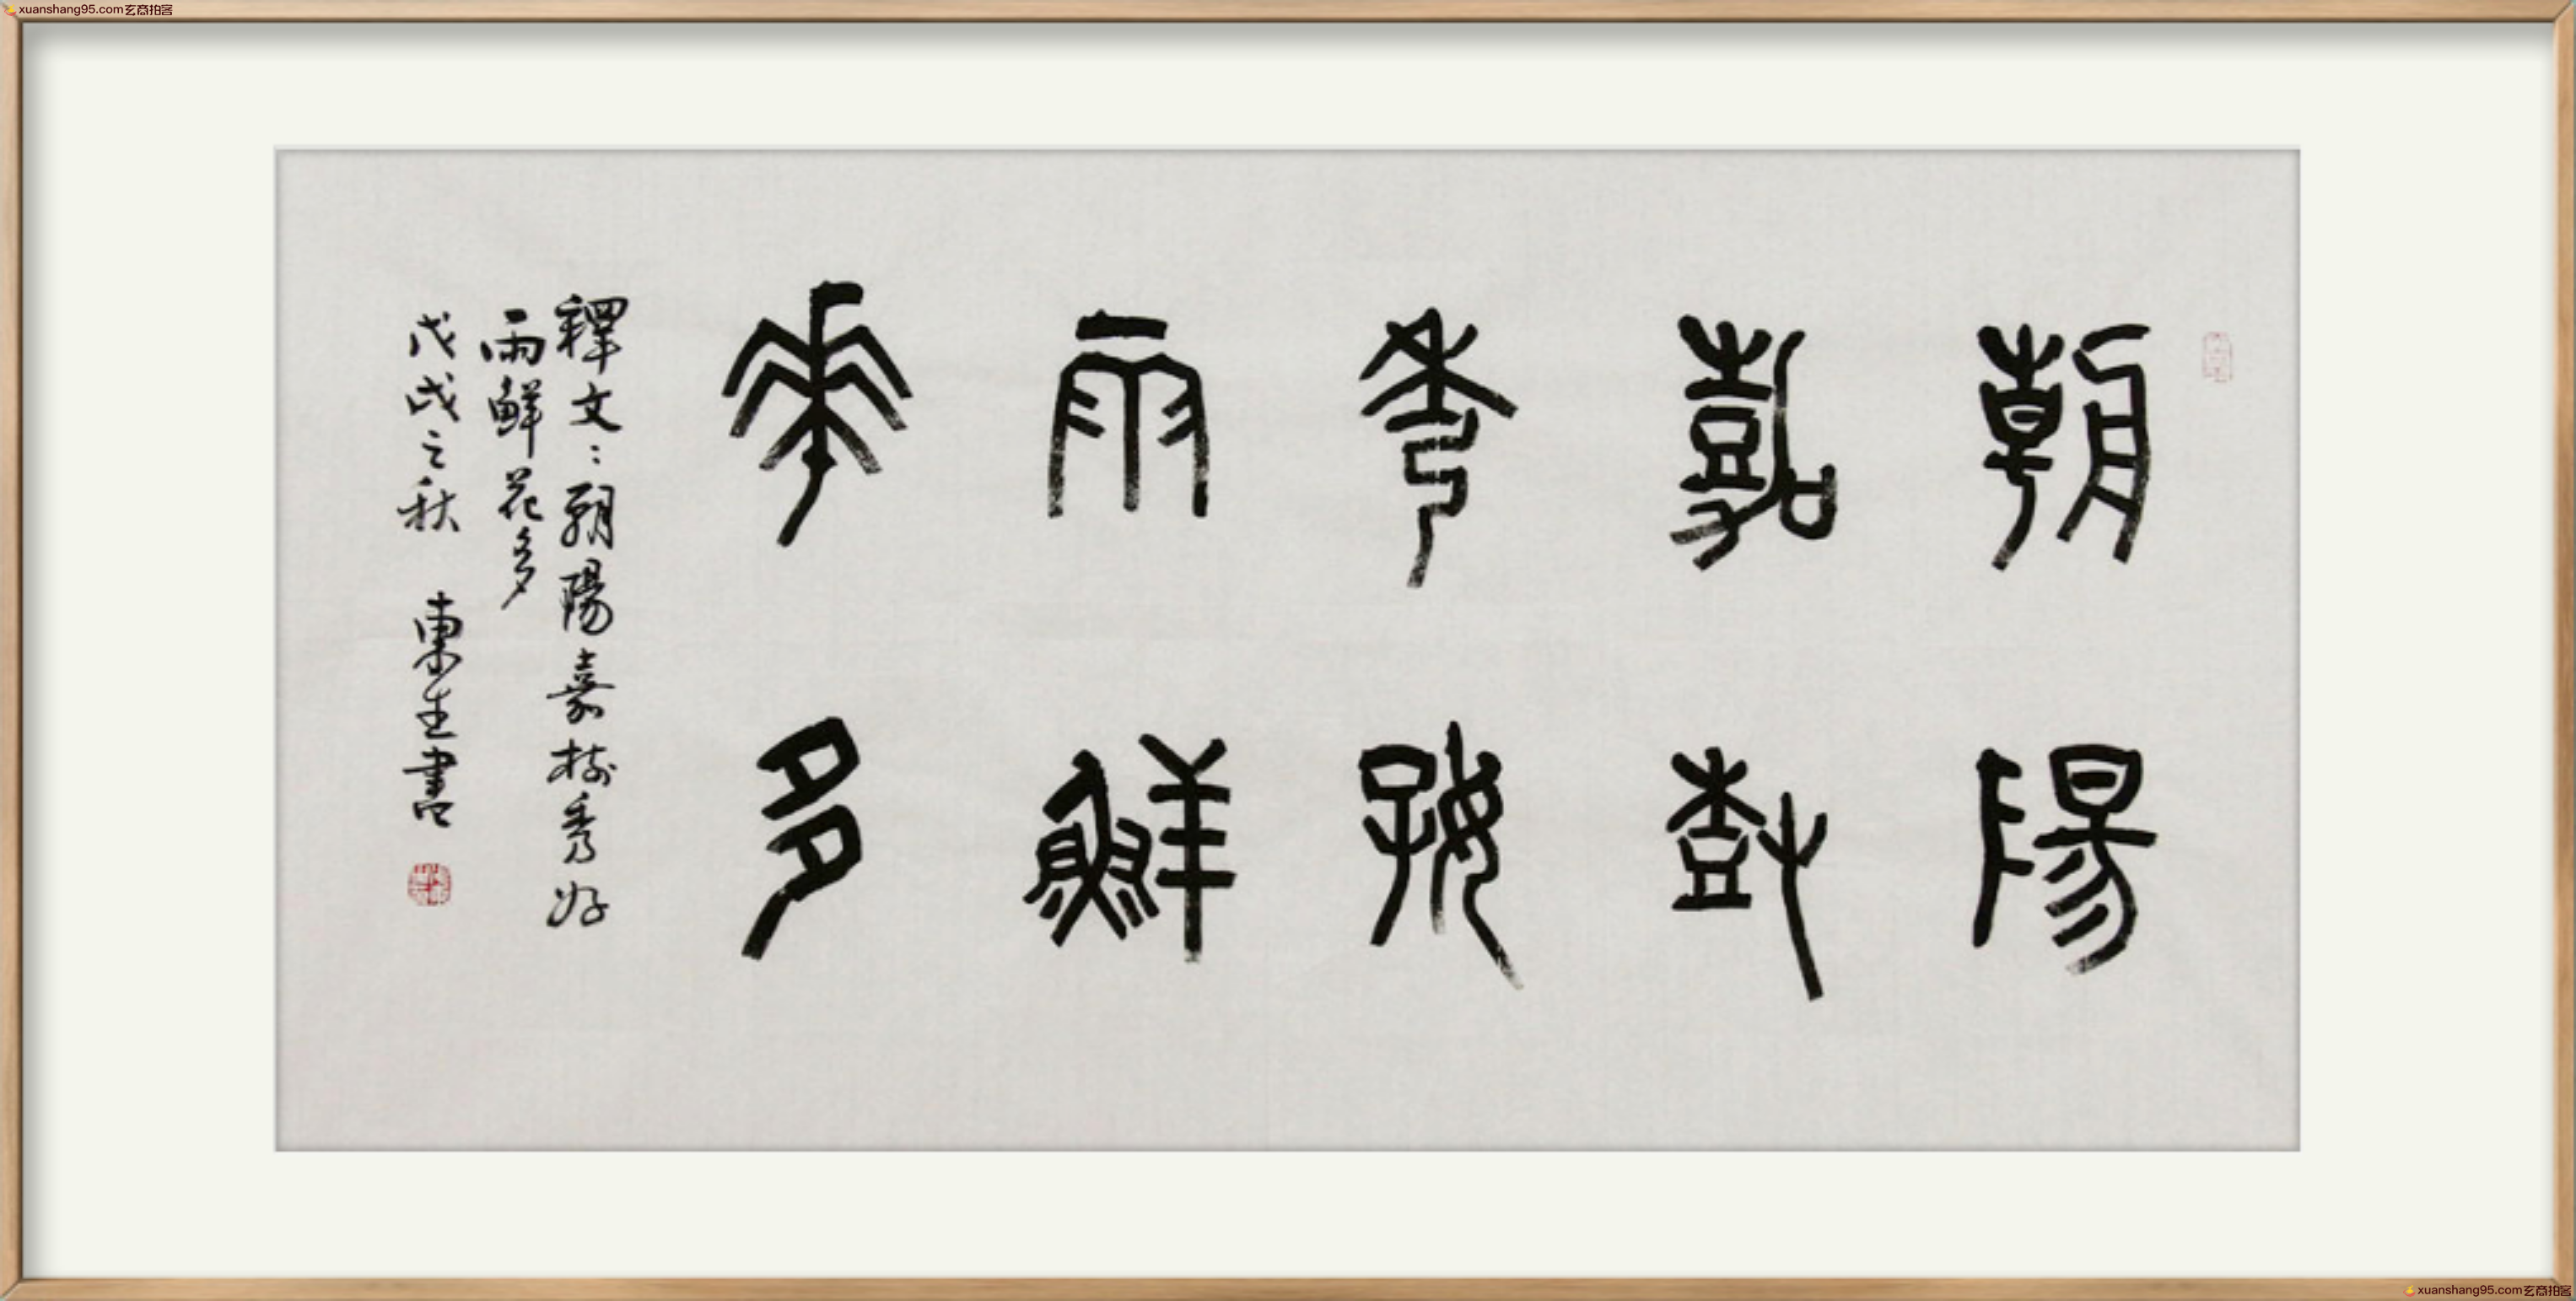 xuanshang95.com玄商拍客
朝陽
嘉樹
秀好
雨鮮
花多
釋文：朝陽嘉樹秀好
雨鮮花多
戊戌之秋 東生書
xuanshang95.com玄商拍客